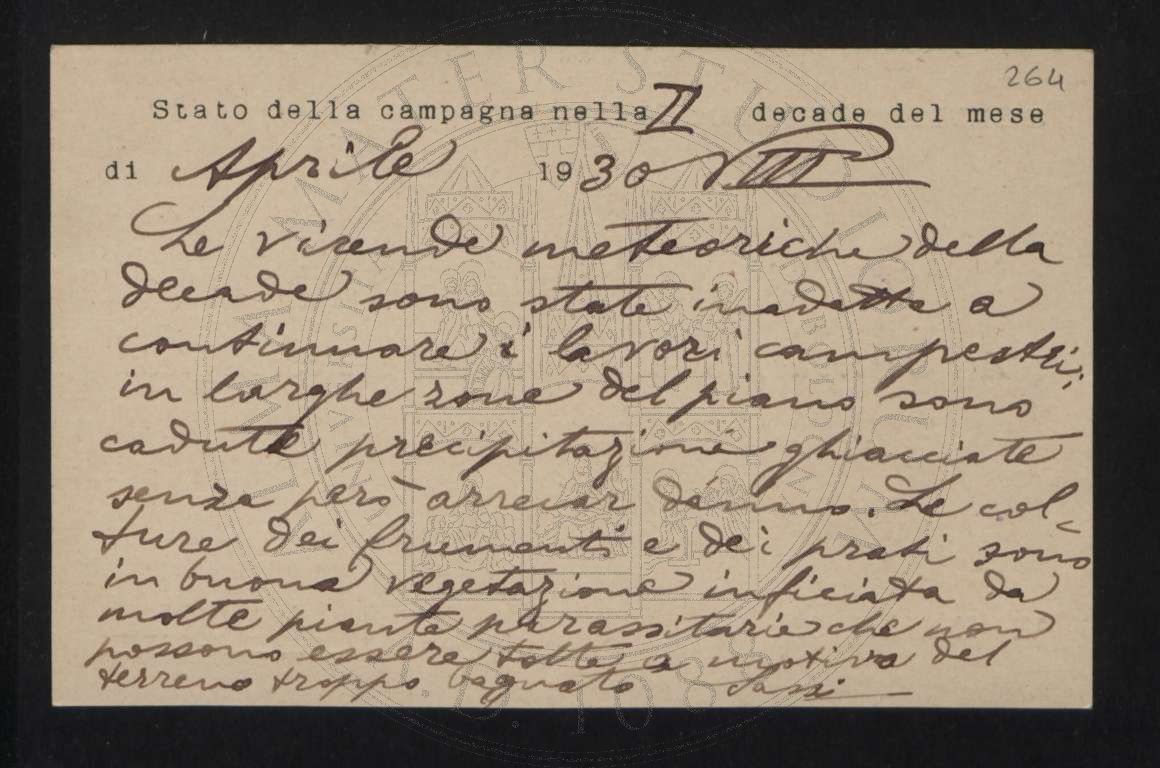 264
Stato della campagna nella II decade del mese
di Aprile 1930 VIII
Le vicende meteoriche della
decade sono state inadatte a
continuare i lavori campestri;
in larghe zone del piano sono
cadute precipitazioni ghiacciate
senza però arrecar danno. Le col-
ture dei frumenti e dei prati sono
in buona vegetazione inficiata da
molte piante parassitarie che non
possono essere tolte a motivo del
terreno troppo bagnato Sassi